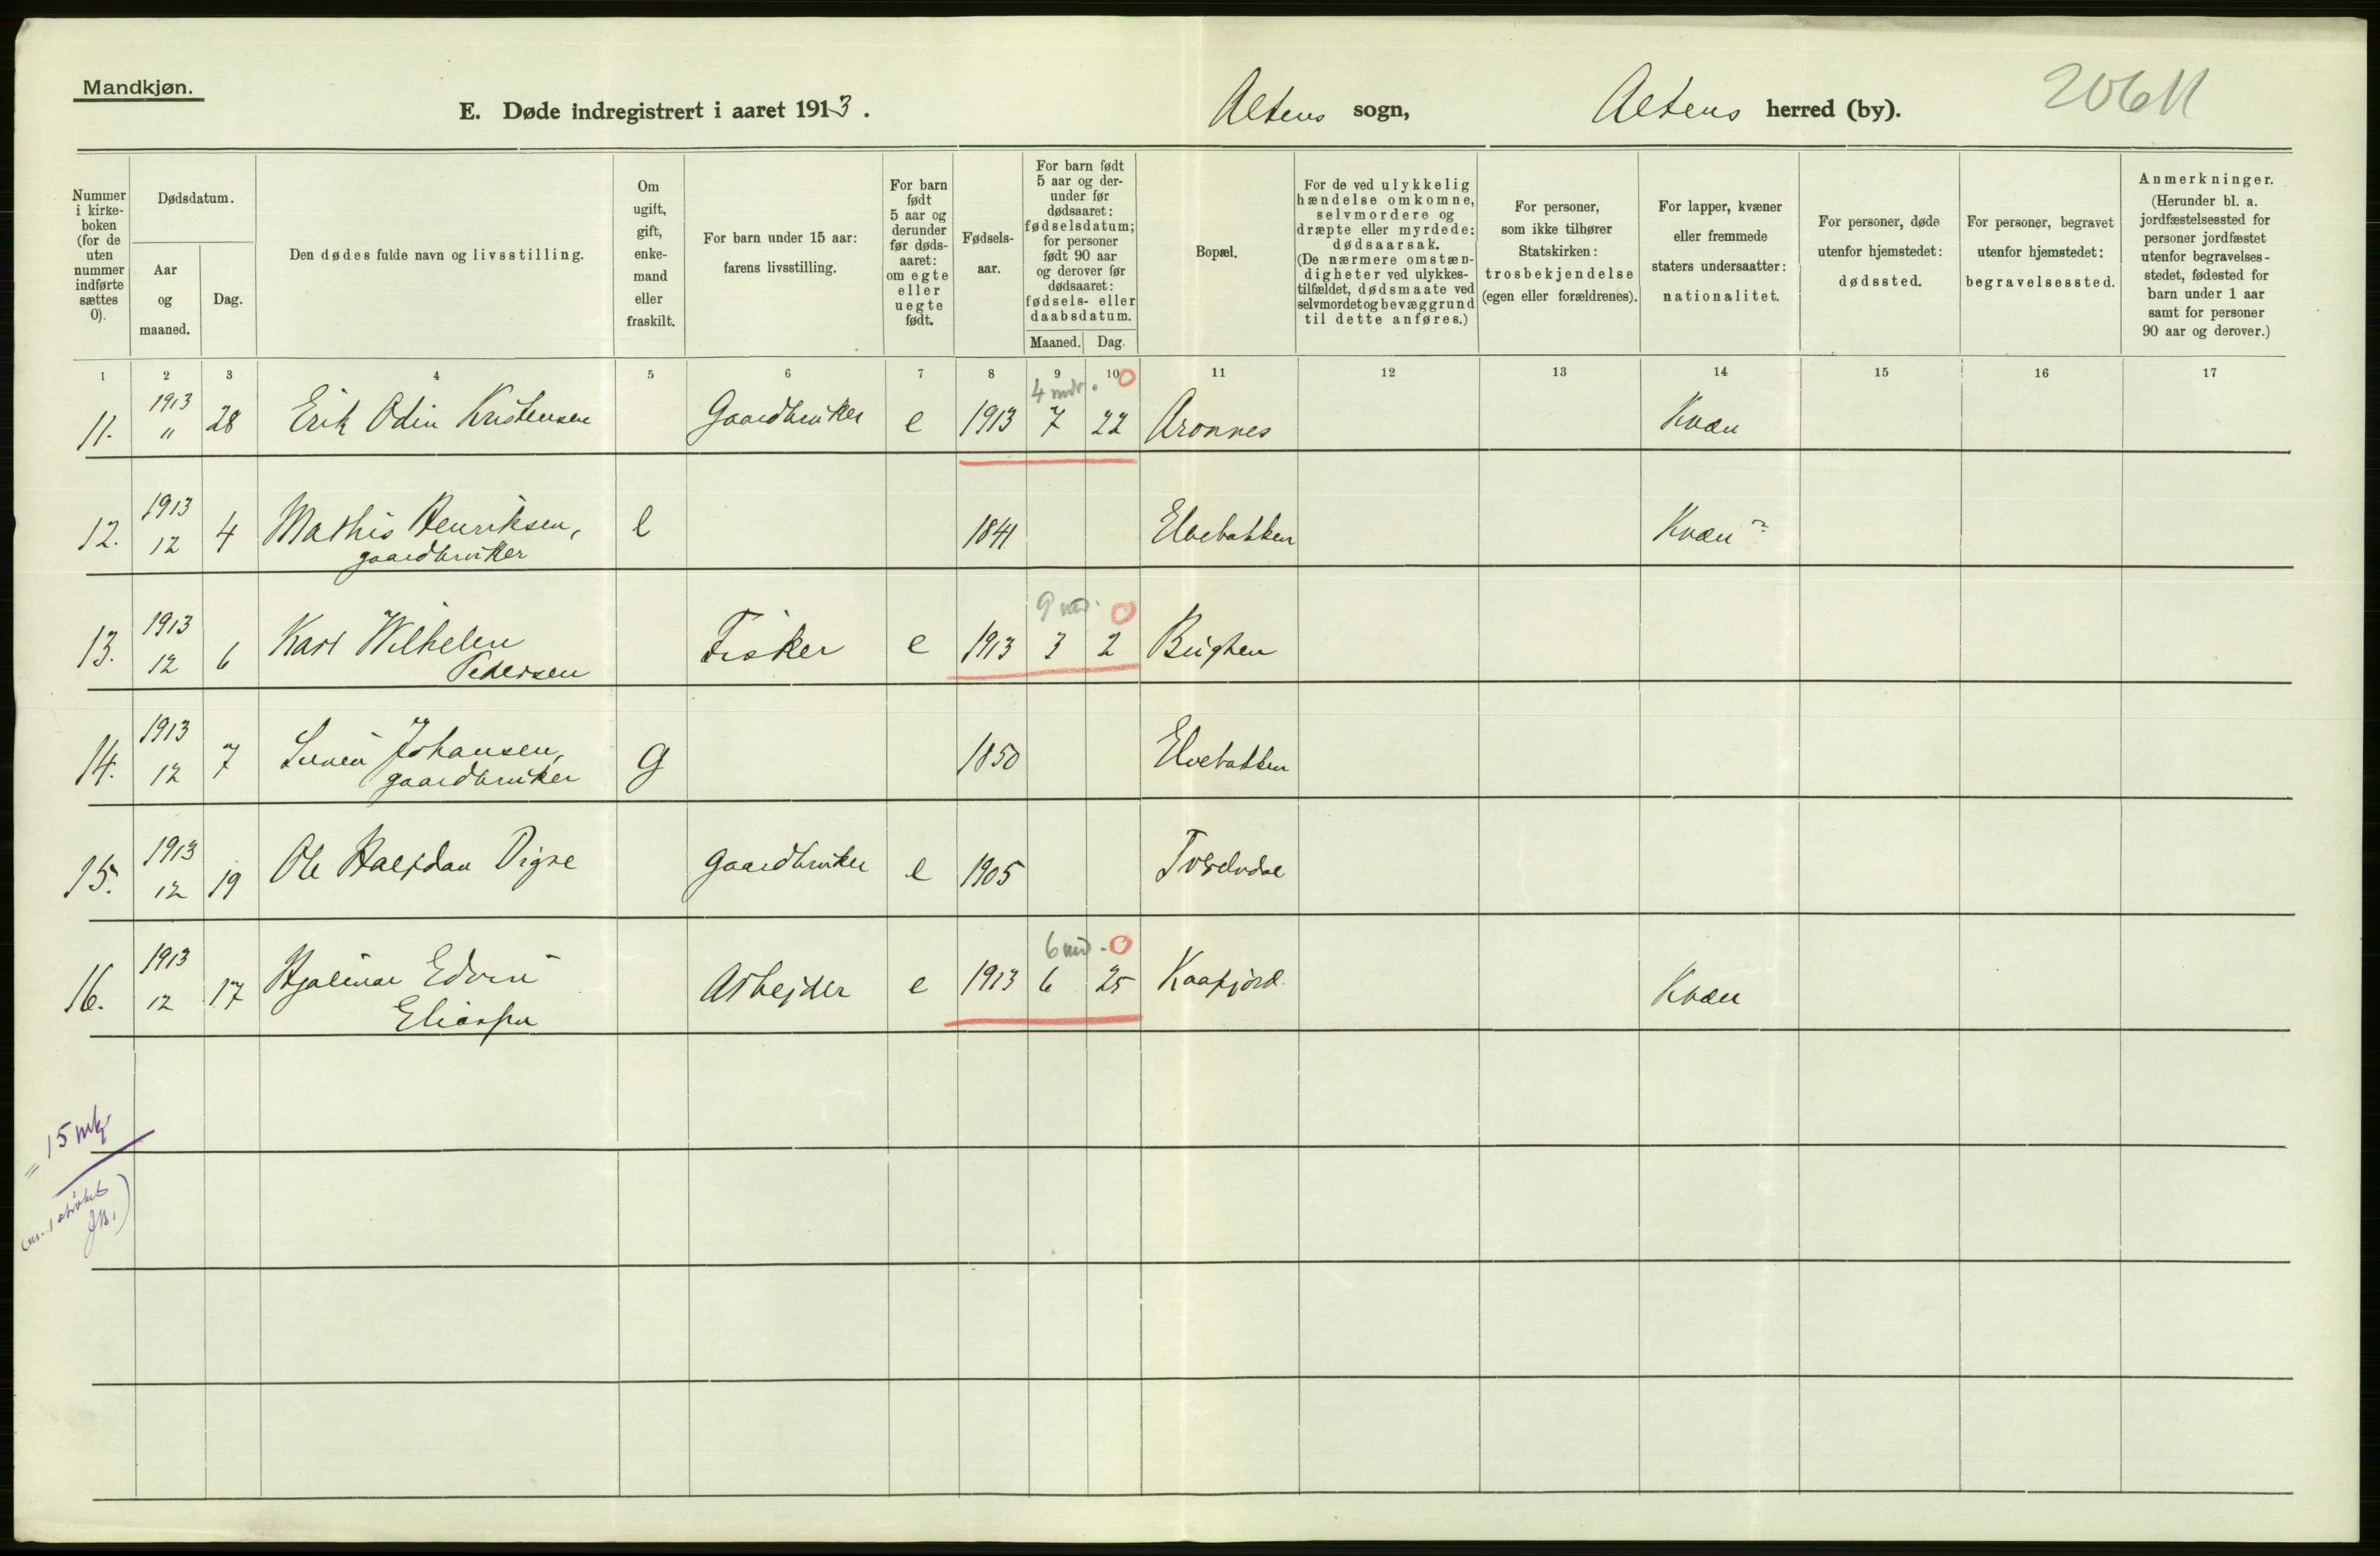 Mandkjøn.
E. Døde indregistrert i aaret 1913.
Altens sogn,
Altens herred (by).
20611
Nummer i kirke-boken (for de uten nummer indførte sættes 0).
Dødsdatum.
Aar og maaned.
Dag.
Den dødes fulde navn og livsstilling.
Om ugift, gift, enke-mand eller fraskilt.
For barn under 15 aar: farens livsstilling.
For barn født 5 aar og derunder før døds-aaret: om egte eller uegte født.
Fødsels-aar.
For barn født 5 aar og der-under før dødsaaret: fødselsdatum; for personer født 90 aar og derover før dødsaaret: fødsels- eller daabsdatum.
Maaned.
Dag.
Bopæl.
For de ved ulykkelig hændelse omkomne, selvmordere og dræpte eller myrdede: dødsaarsak. (De nærmere omstæn-digheter ved ulykkes-tilfældet, dødsmaate ved selvmordet og bevæggrund til dette anføres.)
For personer, som ikke tilhører Statskirken: trosbekjendelse (egen eller forældrenes).
For lapper, kvæner eller fremmede staters undersaatter: nationalitet.
For personer, døde utenfor hjemstedet: dødssted.
For personer, begravet utenfor hjemstedet: begravelsessted.
Anmerkninger. (Herunder bl. a. jordfæstelsessted for personer jordfæstet utenfor begravelses-stedet, fødested for barn under 1 aar samt for personer 90 aar og derover.)
1 2 3 4 5 6 7 8 9 10 11 12 13 14 15 16 17
4 mdr. 0
11. 1913 " 28 Erik Odin Kristensen Gaardbruker e 1913 7 22 Aronnes Kvæn
12. 1913 12 4 Mathis Henriksen, e 1841 Elvebakken Kvæn
gaardbruker
9 md. 0
13. 1913 12 6 Karl Wilhelm Fisker e 1913 3 2
Pedersen
14. 1913 12 7 Johansen, g 1850 Elvebakken
gaardbruker
15. 1913 12 19 Ole Halfdan gaardbruker e 1905 Tverelvdal
6 md. 0
16. 1913 12 17 Hjalmar Edvin Arbejder e 1913 6 25 Kaafjord. Kvæn
Eliassen
= 15 mkj